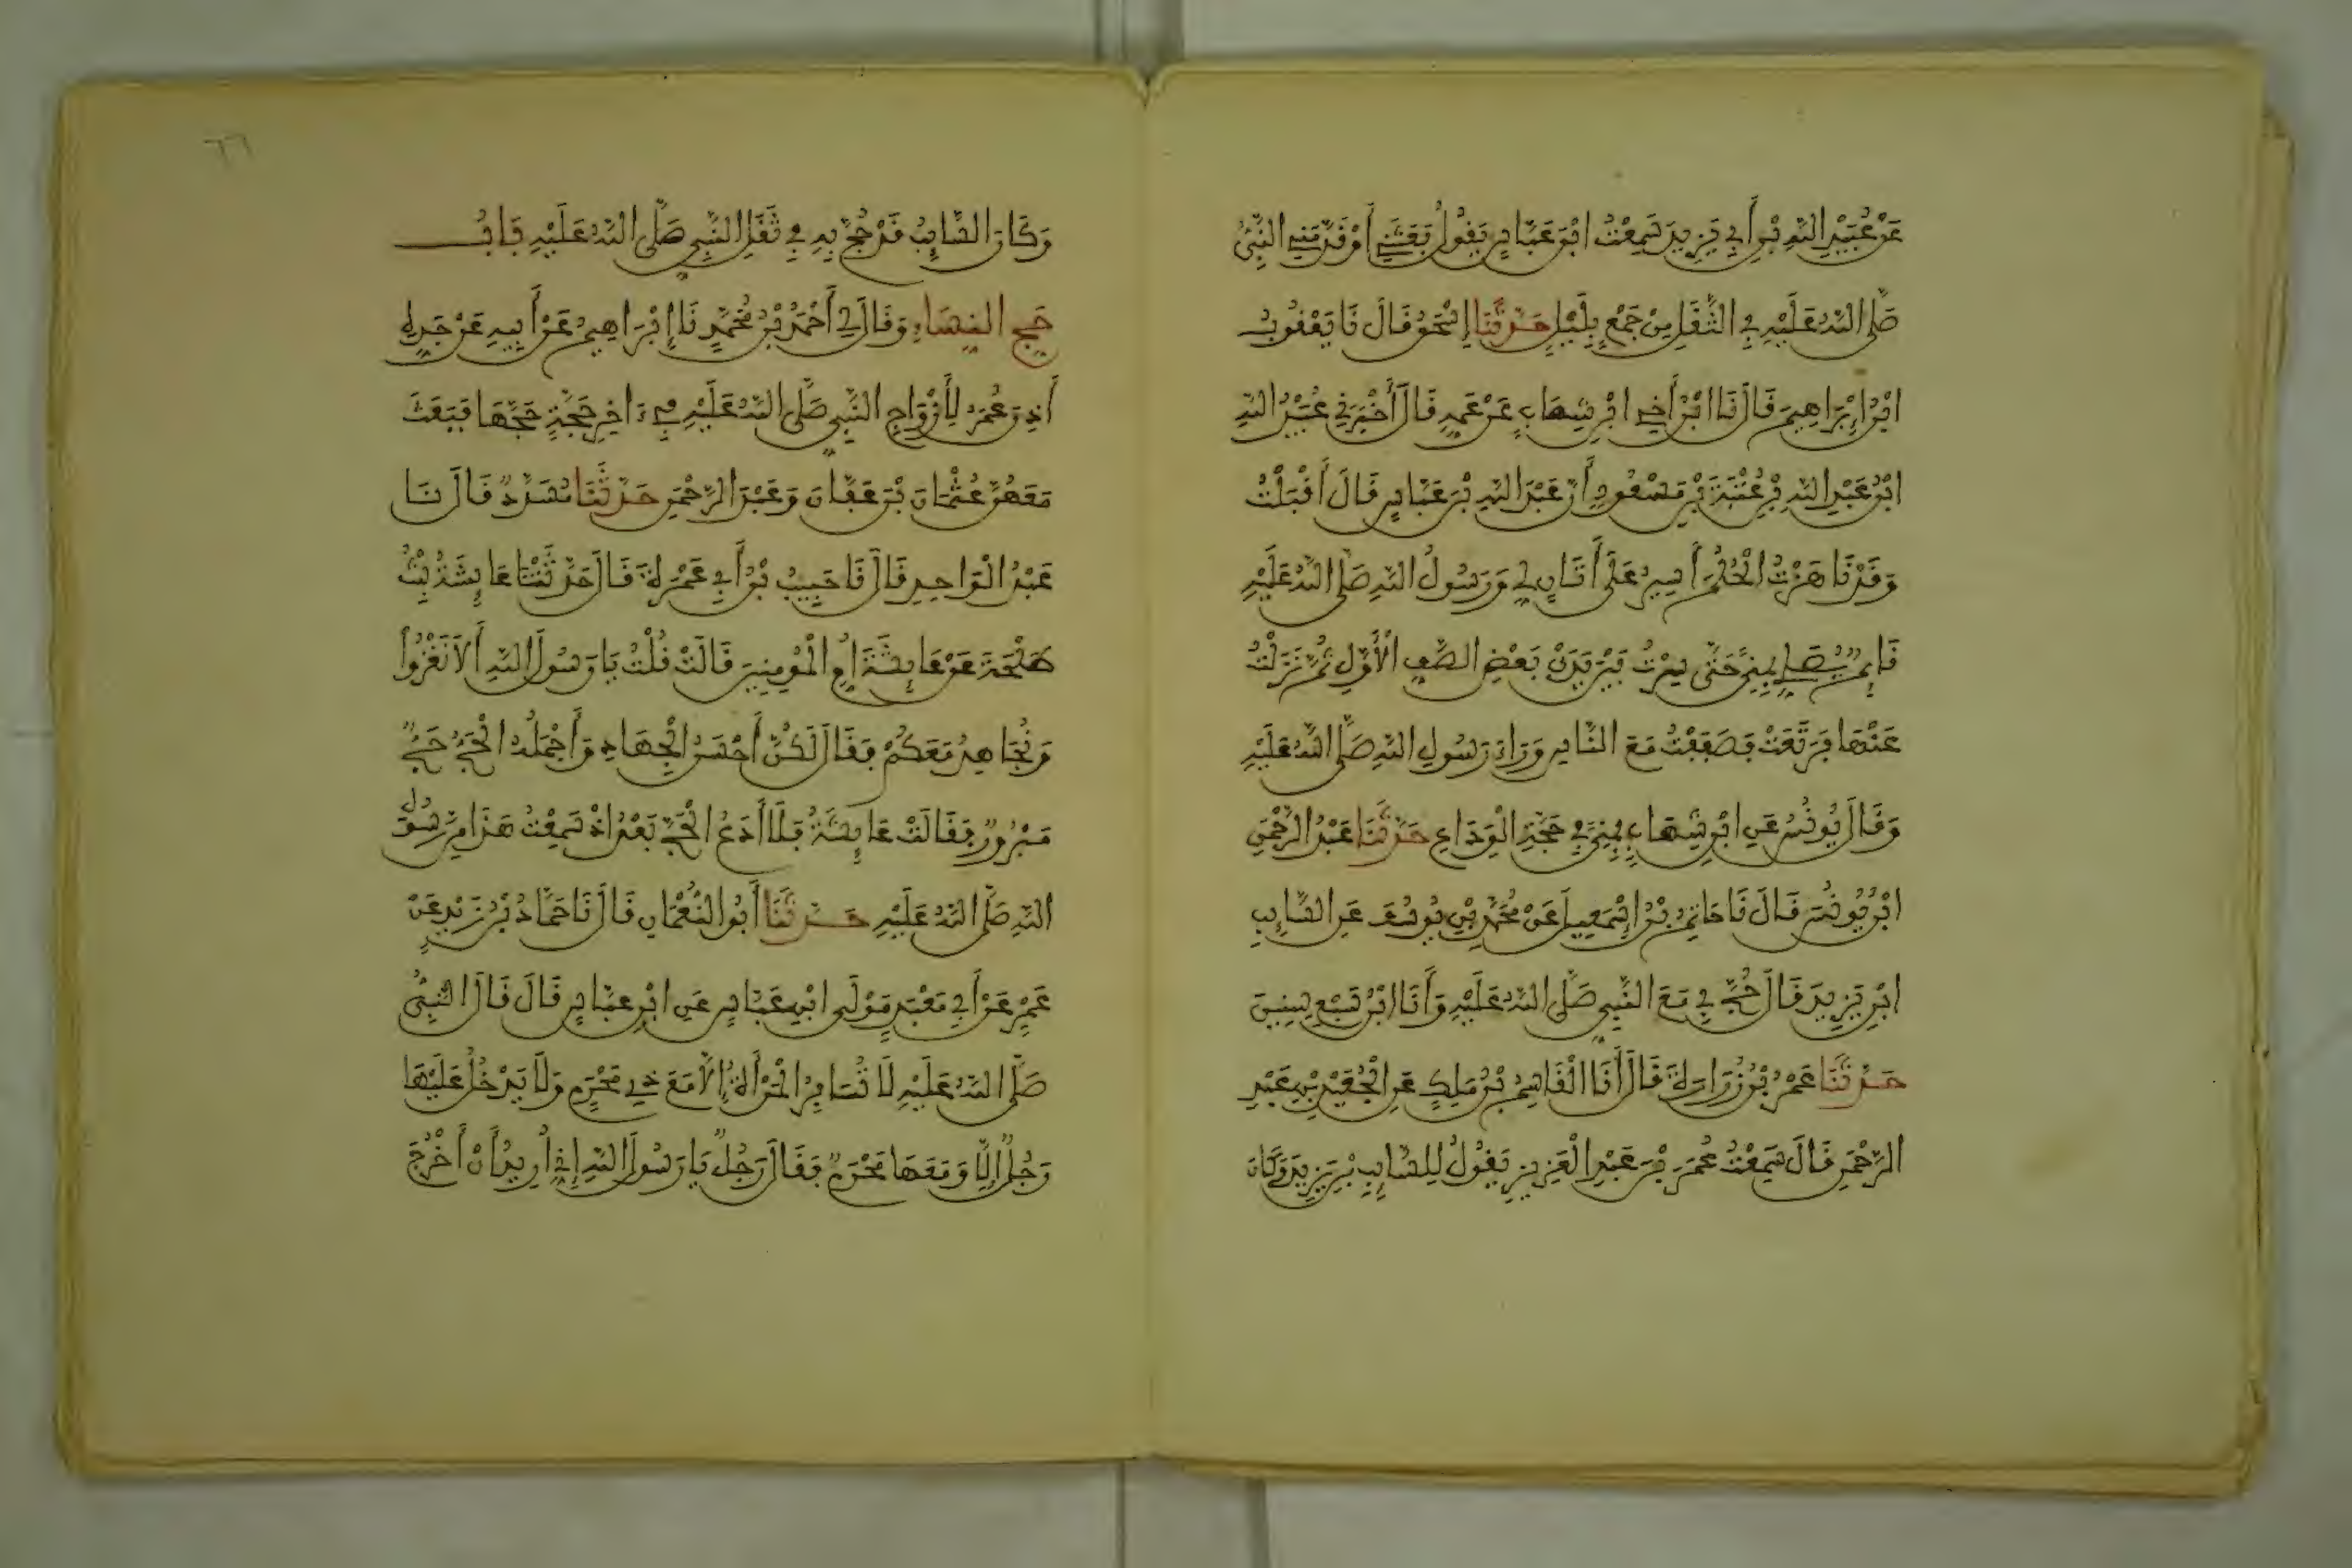 عَنْ عُبَيْدِ اللَّهِ بْنِ أَبِي يَزِيدَ سَمِعْتُ ابْنَ عَبَّاسٍ يَقُولُ بَعَثَنِي أَوْ قَدَّمَنِي النَّبِيُّ
صَلَّى اللَّهُ عَلَيْهِ فِي الثَّقَلِ مِنْ جَمْعٍ بِلَيْلٍ حَدَّثَنَا إِسْحَقُ قَالَ نَا يَعْقُوبُ
ابْنُ إِبْرَاهِيمَ قَالَ نَا ابْنُ أَخِي ابْنِ شِهَابٍ عَنْ عَمِّهِ قَالَ أَخْبَرَنِي عُبَيْدُ اللَّهِ
ابْنُ عَبْدِ اللَّهِ بْنِ عُتْبَةَ بْنِ مَسْعُودٍ أَنَّ عَبْدَ اللَّهِ بْنَ عَبَّاسٍ قَالَ أَقْبَلْتُ
وَقَدْ نَاهَزْتُ الْحُلُمَ أَسِيرُ عَلَى أَتَانٍ لِي وَرَسُولُ اللَّهِ صَلَّى اللَّهُ عَلَيْهِ
قَائِمٌ يُصَلِّي بِمِنًى حَتَّى سِرْتُ بَيْنَ يَدَيْ بَعْضِ الصَّفِّ الْأَوَّلِ ثُمَّ نَزَلْتُ
عَنْهَا فَرَتَعَتْ فَصَفَفْتُ مَعَ النَّاسِ وَرَاءَ رَسُولِ اللَّهِ صَلَّى اللَّهُ عَلَيْهِ
وَقَالَ يُونُسُ عَنِ ابْنِ شِهَابٍ بِمِنًى فِي حَجَّةِ الْوَدَاعِ حَدَّثَنَا عَبْدُ الرَّحْمَنِ
ابْنُ يُونُسَ قَالَ نَا حَاتِمُ بْنُ إِسْمَعِيلَ عَنْ مُحَمَّدِ بْنِ يُوسُفَ عَنِ السَّائِبِ
ابْنِ يَزِيدَ قَالَ حُجَّ بِي مَعَ النَّبِيِّ صَلَّى اللَّهُ عَلَيْهِ وَأَنَا ابْنُ سَبْعِ سِنِينَ
حَدَّثَنَا عَمْرُو بْنُ زُرَارَةَ قَالَ أَنَا الْقَاسِمُ بْنُ مَلِكٍ عَنِ الْجُعَيْدِ بْنِ عَبْدِ
الرَّحْمَنِ قَالَ سَمِعْتُ عُمَرَ بْنَ عَبْدِ الْعَزِيزِ يَقُولُ لِلسَّائِبِ بْنِ يَزِيدَ وَكَانَ
٦٦
وَكَانَ السَّائِبُ قَدْ حُجَّ بِهِ فِي ثَقَلِ النَّبِيِّ صَلَّى اللَّهُ عَلَيْهِ بَابُ
حَجِّ النِّسَاءِ وَقَالَ لِي أَحْمَدُ بْنُ مُحَمَّدٍ نَا إِبْرَاهِيمُ عَنْ أَبِيهِ عَنْ جَدِّهِ
أَذِنَ عُمَرُ لِأَزْوَاجِ النَّبِيِّ صَلَّى اللَّهُ عَلَيْهِ فِي ءَاخِرِ حَجَّةٍ حَجَّهَا فَبَعَثَ
مَعَهُنَّ عُثْمَانَ بْنَ عَفَّانَ وَعَبْدَ الرَّحْمَنِ حَدَّثَنَا مُسَدَّدٌ قَالَ نَا
عَبْدُ الْوَاحِدِ قَالَ نَا حَبِيبُ بْنُ أَبِي عَمْرَةَ قَالَ حَدَّثَتْنَا عَائِشَةُ بِنْتُ
طَلْحَةَ عَنْ عَائِشَةَ أُمِّ الْمُؤْمِنِينَ قَالَتْ قُلْتُ يَا رَسُولَ اللَّهِ أَلَا نَغْزُوا
وَنُجَاهِدُ مَعَكُمْ فَقَالَ لَكُنَّ أَحْسَنُ الْجِهَادِ وَأَجْمَلُهُ الْحَجُّ حَجٌّ
مَبْرُورٌ فَقَالَتْ عَائِشَةُ فَلَا أَدَعُ الْحَجَّ بَعْدَ إِذْ سَمِعْتُ هَذَا مِنْ رَسُولِ
اللَّهِ صَلَّى اللَّهُ عَلَيْهِ حَدَّثَنَا أَبُو النُّعْمَانِ قَالَ نَا حَمَّادُ بْنُ زَيْدٍ عَنْ
عَمْرٍو عَنْ أَبِي مَعْبَدٍ مَوْلَى ابْنِ عَبَّاسٍ عَنِ ابْنِ عَبَّاسٍ قَالَ قَالَ النَّبِيُّ
صَلَّى اللَّهُ عَلَيْهِ لَا تُسَافِرُ الْمَرْأَةُ إِلَّا مَعَ ذِي مَحْرَمٍ وَلَا يَدْخُلُ عَلَيْهَا
رَجُلٌ إِلَّا وَمَعَهَا مَحْرَمٌ فَقَالَ رَجُلٌ يَا رَسُولَ اللَّهِ إِنِّي أُرِيدُ أَنْ أَخْرُجَ